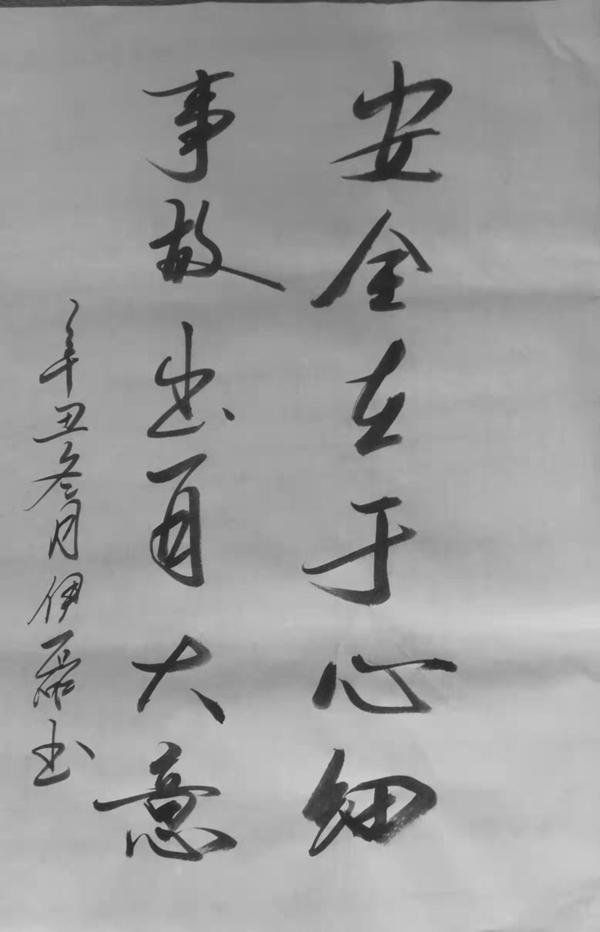 安全在于心细
事故出自大意
辛丑冬月伊磊书